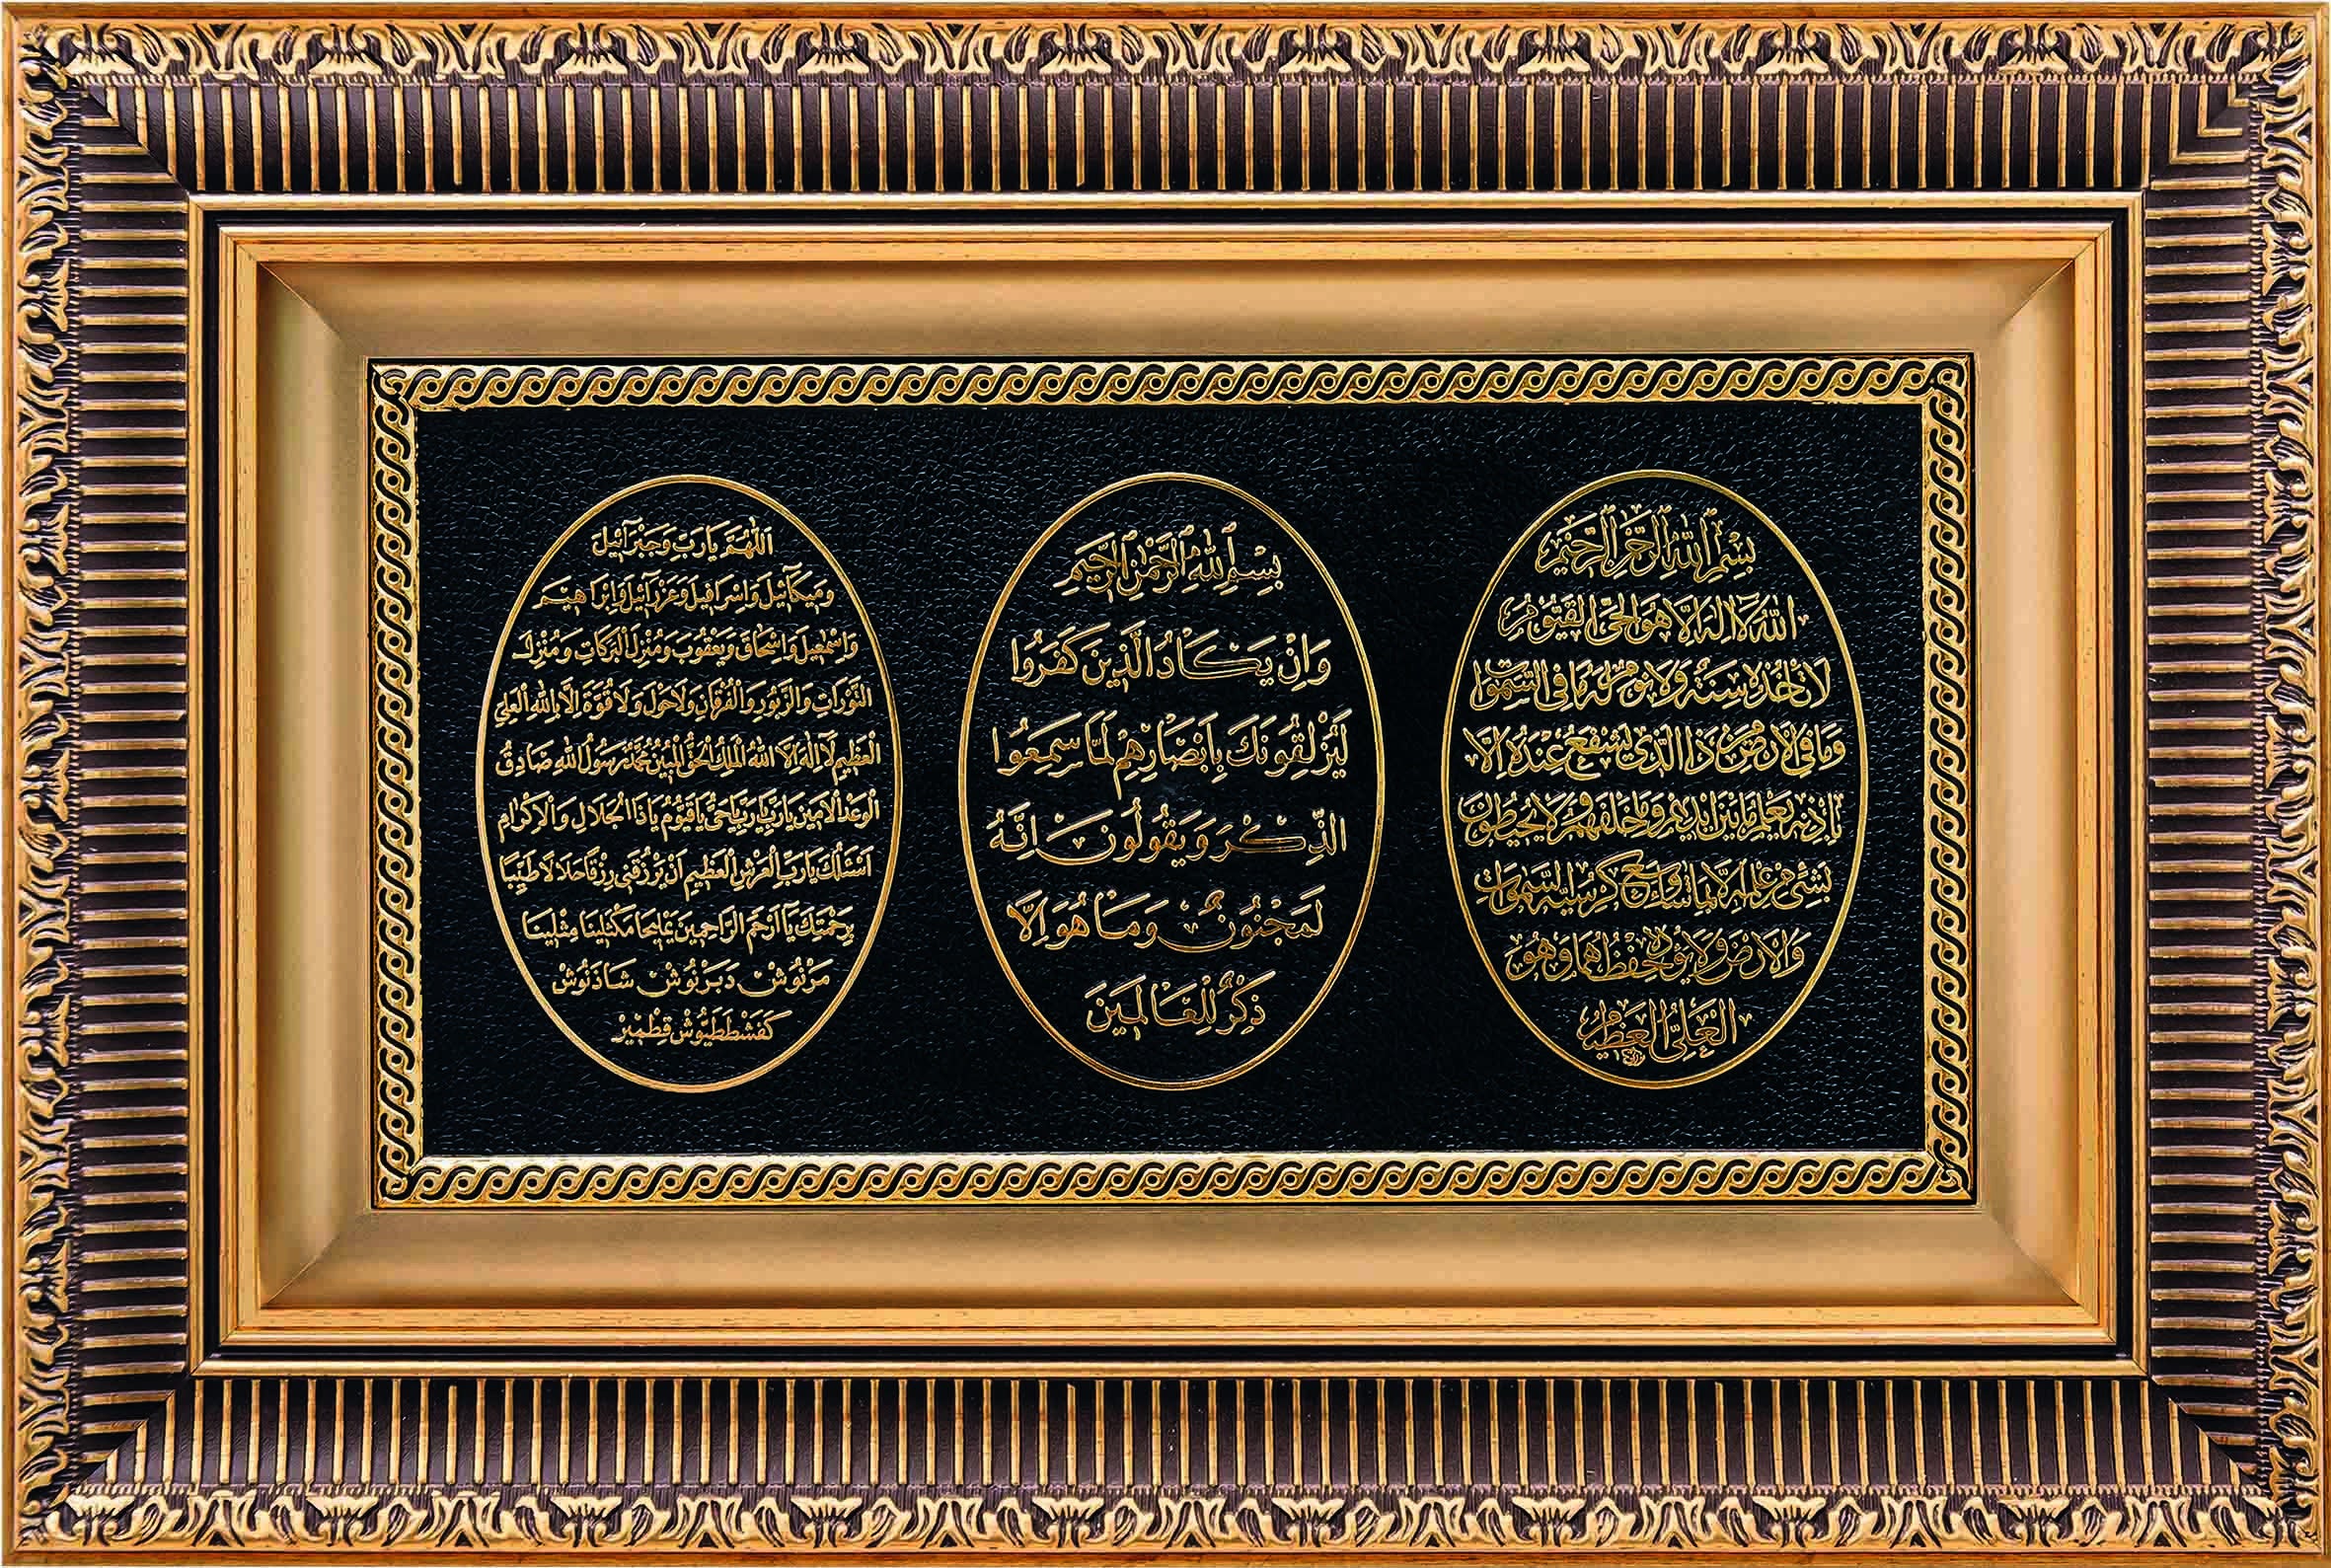 بِسْمِ اللهِ الرَّحْمٰنِ الرَّحِيمِ
اَللهُ لَا اِلٰهَ اِلَّا هُوَ الْحَيُّ الْقَيُّومُ
لَا تَأْخُذُهُ سِنَةٌ وَلَا نَوْمٌ لَهُ مَا فِي السَّمٰوَاتِ
وَمَا فِي الْاَرْضِ مَنْ ذَا الَّذِي يَشْفَعُ عِنْدَهُ اِلَّا
بِاِذْنِهِ يَعْلَمُ مَا بَيْنَ اَيْدِيهِمْ وَمَا خَلْفَهُمْ وَلَا يُحِيطُونَ
بِشَيْءٍ مِنْ عِلْمِهِ اِلَّا بِمَا شَاءَ وَسِعَ كُرْسِيُّهُ السَّمٰوَاتِ
وَالْاَرْضَ وَلَا يَؤُدُهُ حِفْظُهُمَا وَهُوَ
الْعَلِيُّ الْعَظِيمُ
بِسْمِ اللهِ الرَّحْمٰنِ الرَّحِيمِ
وَاِنْ يَكَادُ الَّذِينَ كَفَرُوا
لَيُزْلِقُونَكَ بِاَبْصَارِهِمْ لَمَّا سَمِعُوا
الذِّكْرَ وَيَقُولُونَ اِنَّهُ
لَمَجْنُونٌ وَمَا هُوَ اِلَّا
ذِكْرٌ لِلْعَالَمِينَ
اَللّٰهُمَّ يَارَبِّ وَجَبْرَآئِيلَ
وَمِيكَآئِيلَ وَاِسْرَافِيلَ وَعَزْرَآئِيلَ وَاِبْرَاهِيمَ
وَاِسْمٰعِيلَ وَاِسْحَاقَ وَيَعْقُوبَ وَمُنْزِلَ الْبَرَكَاتِ وَمُنْزِلَ
التَّوْرَاتِ وَالزَّبُورِ وَالْفُرْقَانِ وَلَا حَوْلَ وَلَا قُوَّةَ اِلَّا بِاللهِ الْعَلِيِّ
الْعَظِيمِ لَا اِلٰهَ اِلَّا اللهُ الْمَلِكُ الْحَقُّ الْمُبِينُ مُحَمَّدٌ رَسُولُ اللهِ صَادِقُ
الْوَعْدِ الْاَمِينِ يَارَبِّ يَارَبِّ يَاحَيُّ يَاقَيُّومُ يَاذَا الْجَلَالِ وَالْاِكْرَامِ
اَسْئَلُكَ يَارَبَّ الْعَرْشِ الْعَظِيمِ اَنْ يَرْزُقَنِي رِزْقًا حَلَالًا طَيِّبًا
بِرَحْمَتِكَ يَآ اَرْحَمَ الرَّاحِمِينَ يَمْلِيخَا مَكْثَلِينَا مِثْلِينَا
مَرْنُوشْ دَبَرْنُوشْ شَاذَنُوشْ
كَفَشْطَطَيُّوشْ قِطْمِيرْ